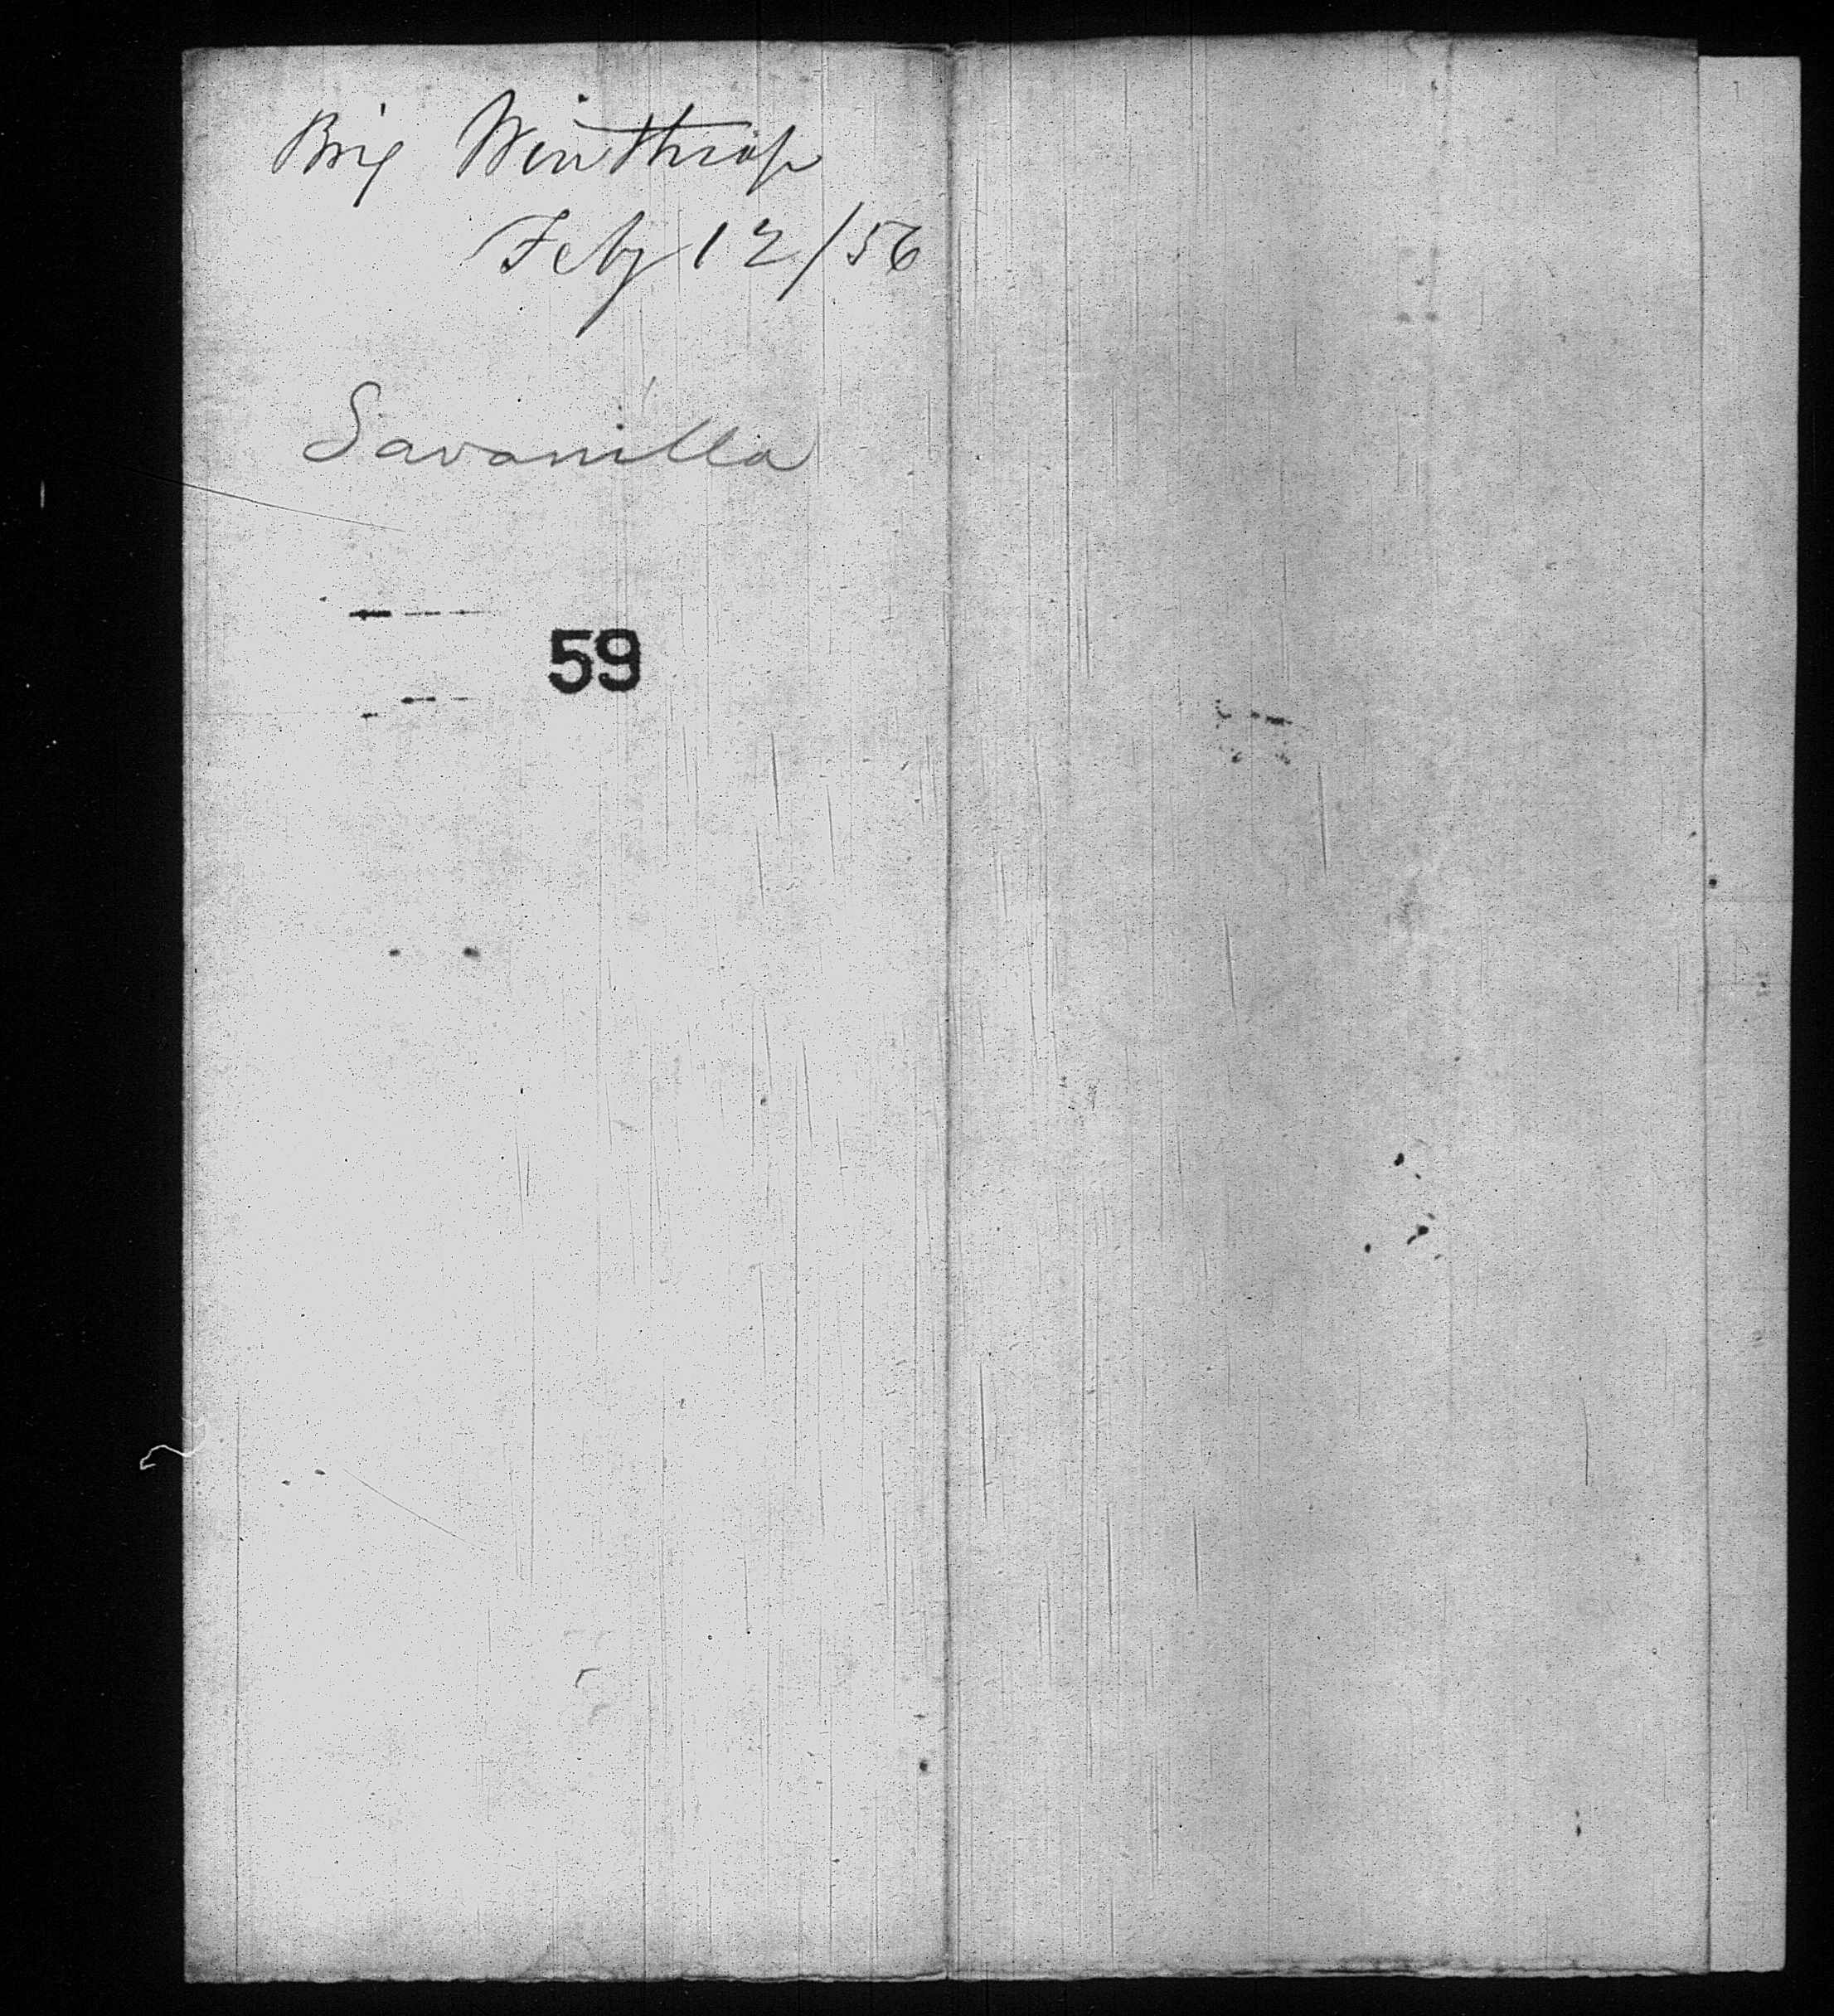 Brig Winthrop
Feby 12/56
Savanilla
59